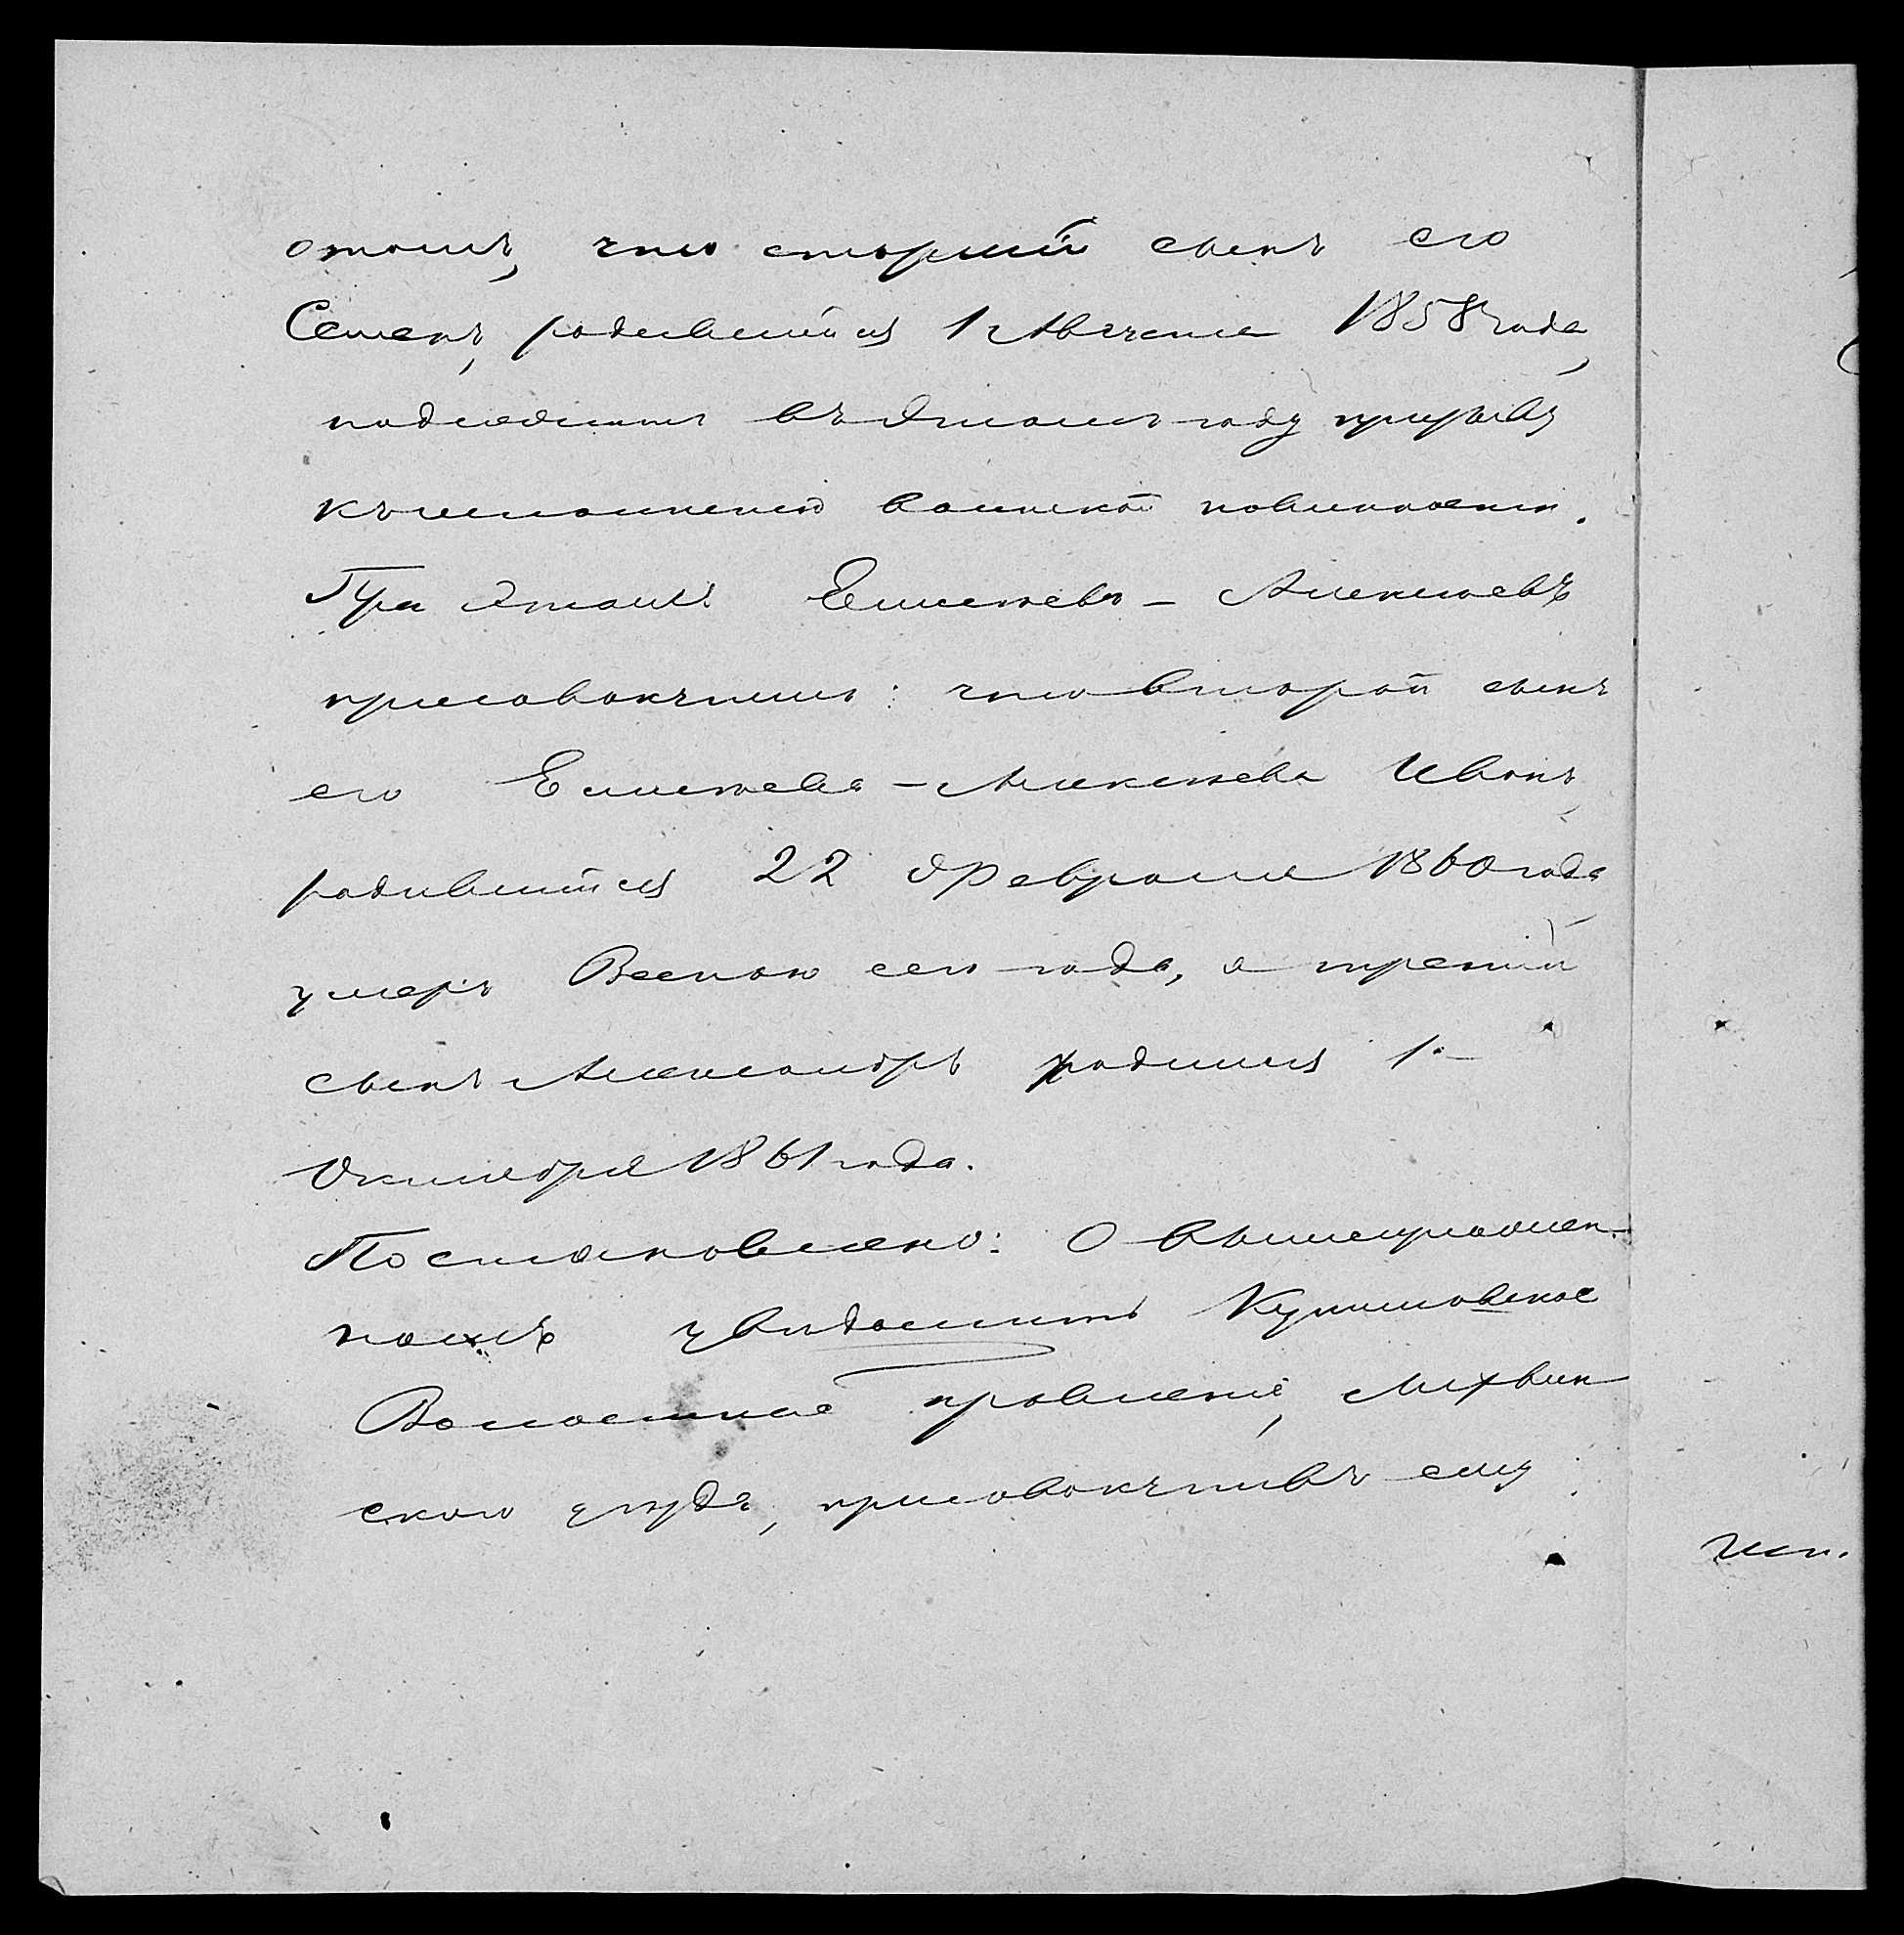 отомъ, что старшій сынъ его
Семенъ, родившійся 1 Августа 1858 года,
подлежитъ въ этомъ году призыву
къ исполненію воинской повинности.
При этомъ Елисѣевъ - Алексѣевъ
присовокупилъ: что второй сынъ
его Елисѣева - Алексѣева Иванъ,
родившійся 22 Февраля 1860 года
умеръ Весною сего года, а третій
сынъ Александръ родился 1
Октября 1861 года.
Постановлено: О вышеизложен-
номъ увѣдомить
Волостное правленіе, Лихвин
скаго уѣзда, присовокупивъ ему